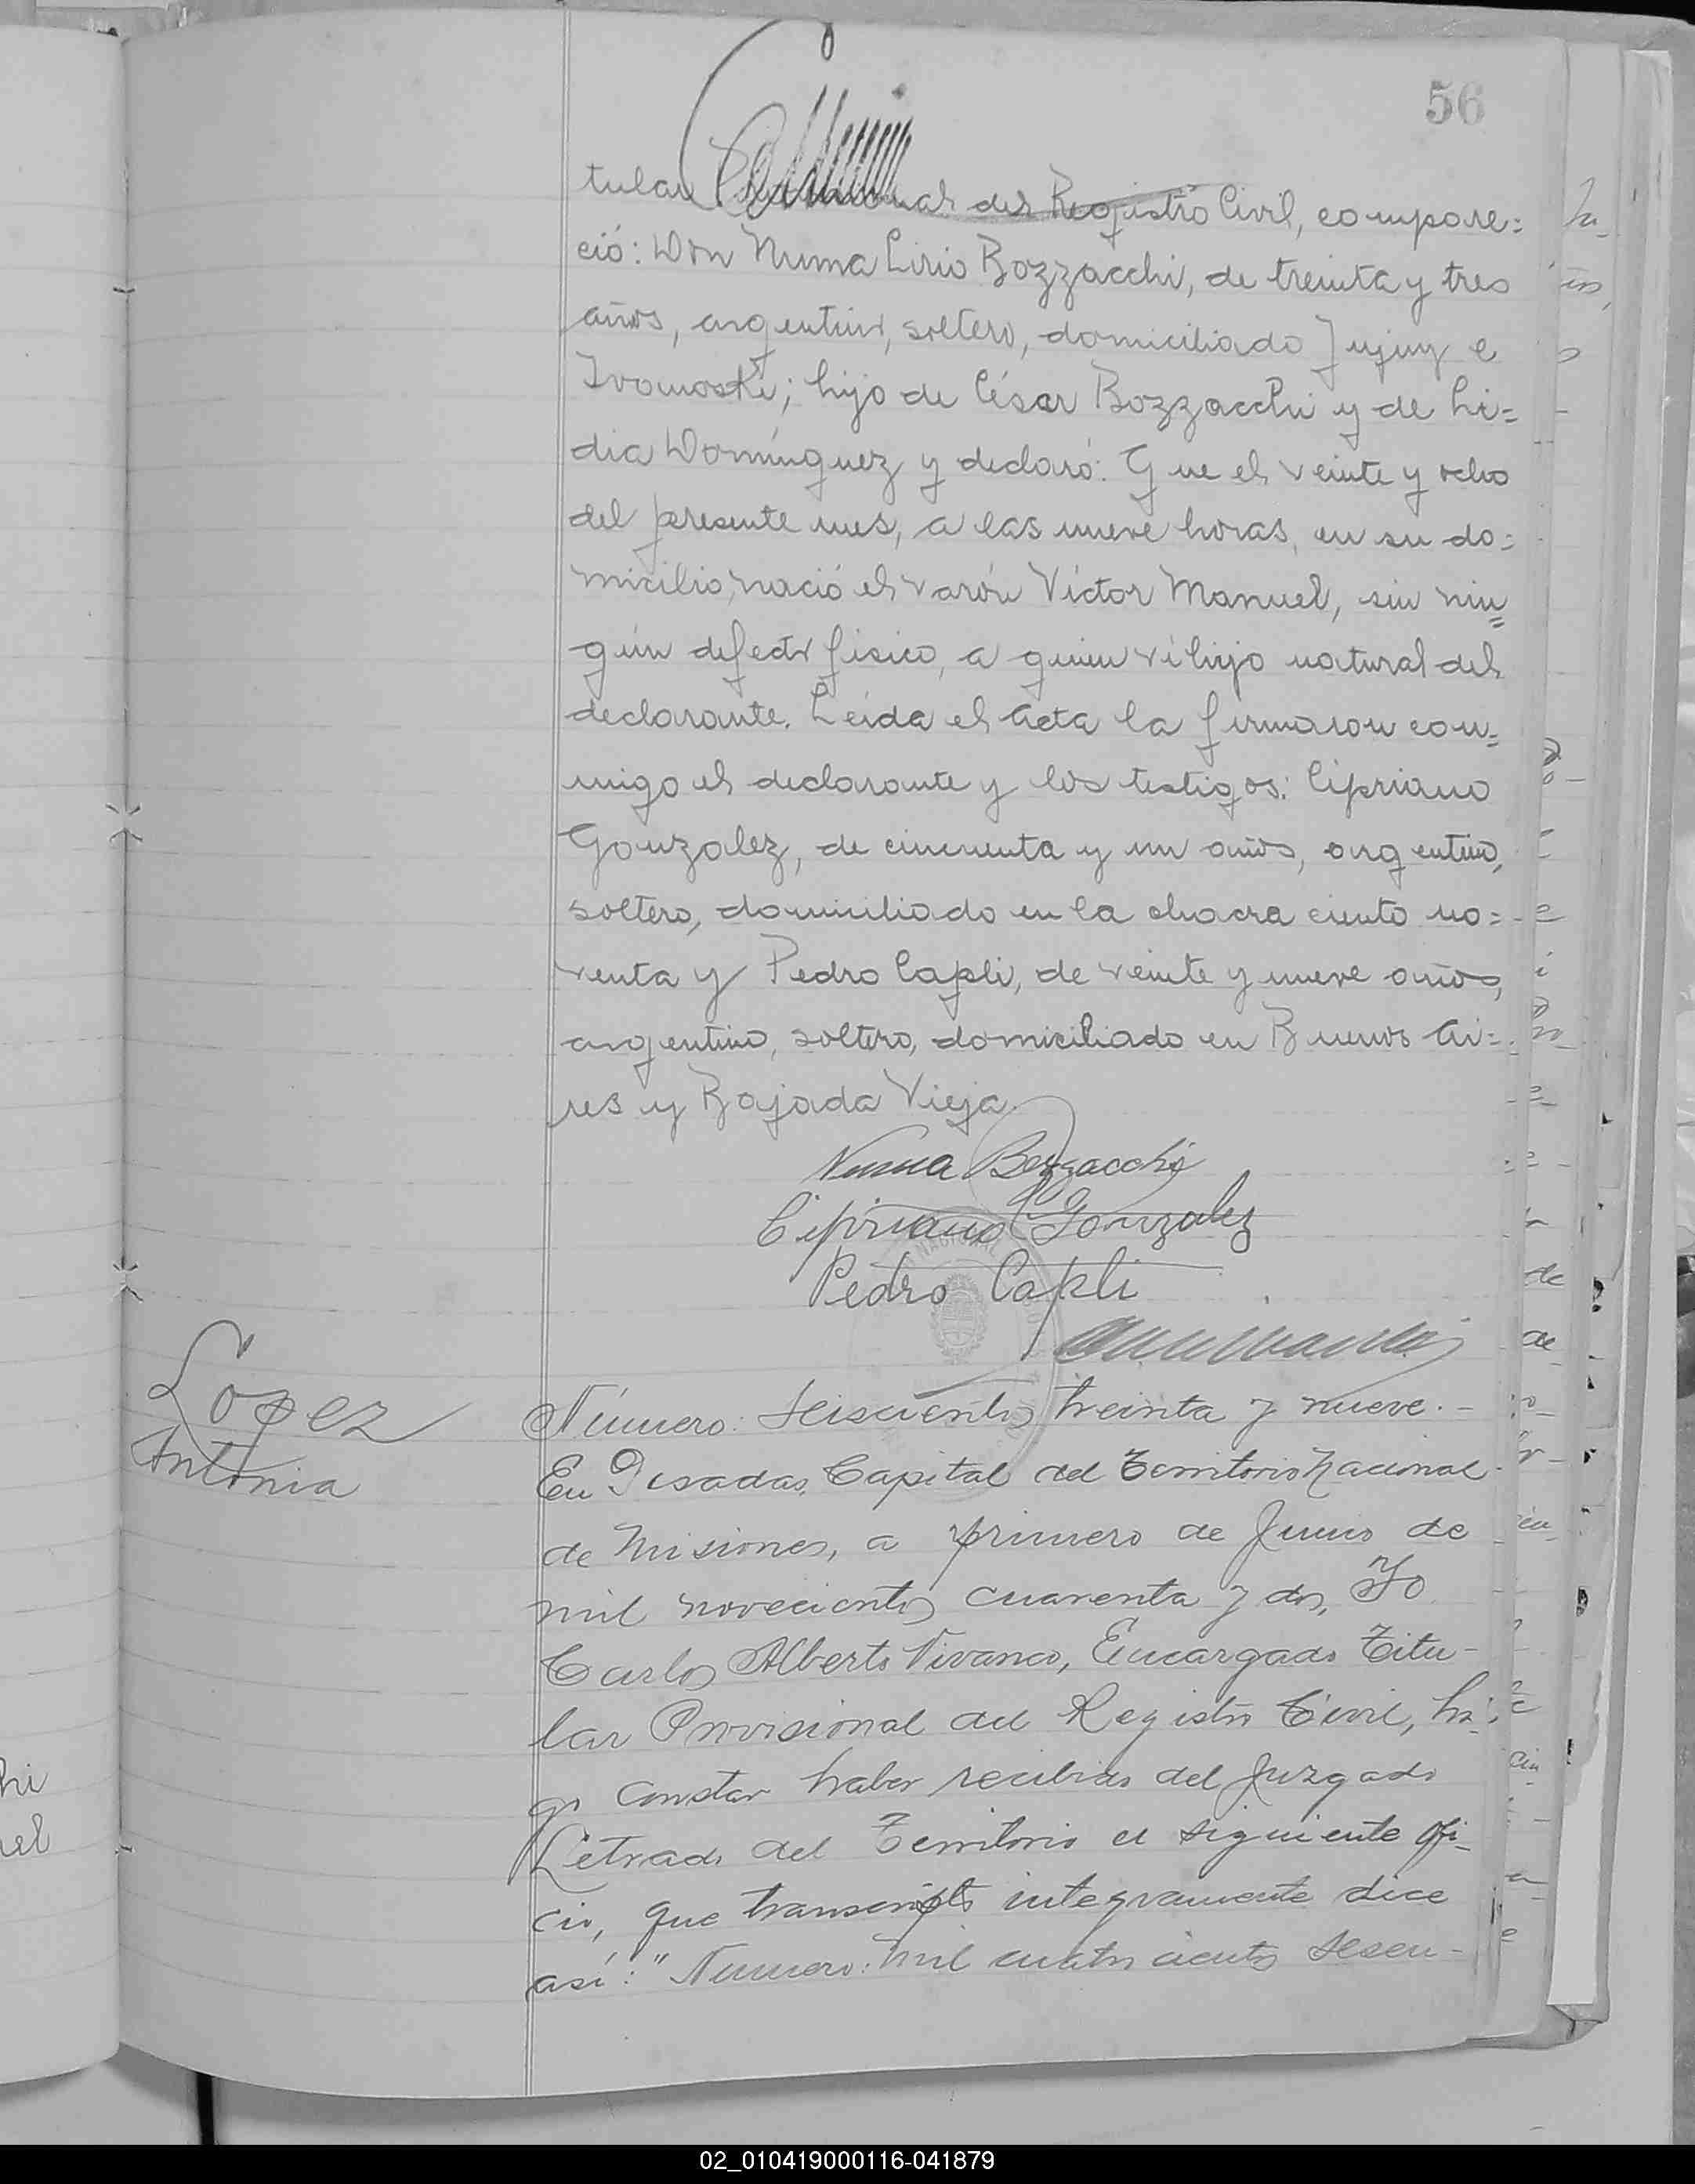 56
tular Provisional del Registro Civil, compare=
ció: Don Numa Lirio Bozzacchi, de treinta y tres
años, argentino, soltero, domiciliado Jujuy e
hijo de César Bozzacchi y de Li=
dia Domínguez y declaró: Que el veinte y ocho
del presente mes, a las nueve horas, en su do=
micilio, nació el varón Víctor Manuel, sin nin=
gún defecto físico, a quien ví hijo natural del
declarante. Leída el Acta la firmaron con=
migo el declarante y los testigos: Cipriano
Gonzalez, de cincuenta y un años, argentino,
soltero, domiciliado en la chacra ciento no=
venta y Pedro Capli, de veinte y nueve años,
argentino, soltero, domiciliado en Buenos Ai=
res y Bajada Vieja.
Numa Bozzacchi
Cipriano Gonzalez
Pedro Capli
NACIONAL
Lopez
Antonia
Número: Seiscientos treinta y nueve.-
En Posadas, Capital del Territorio Nacional
de Misiones, a primero de Junio de
mil novecientos cuarenta y dos, Yo
Carlos Alberto Vivanco, Encargado Titu-
lar Provisional del Registro Civil, ha-
go constar haber recibido del Juzgado
Letrado del Territorio el siguiente ofi-
cio, que transcripto integramente dice
así: "Número: mil cuatrocientos sesen-
hi
uel
02_010419000116-041879